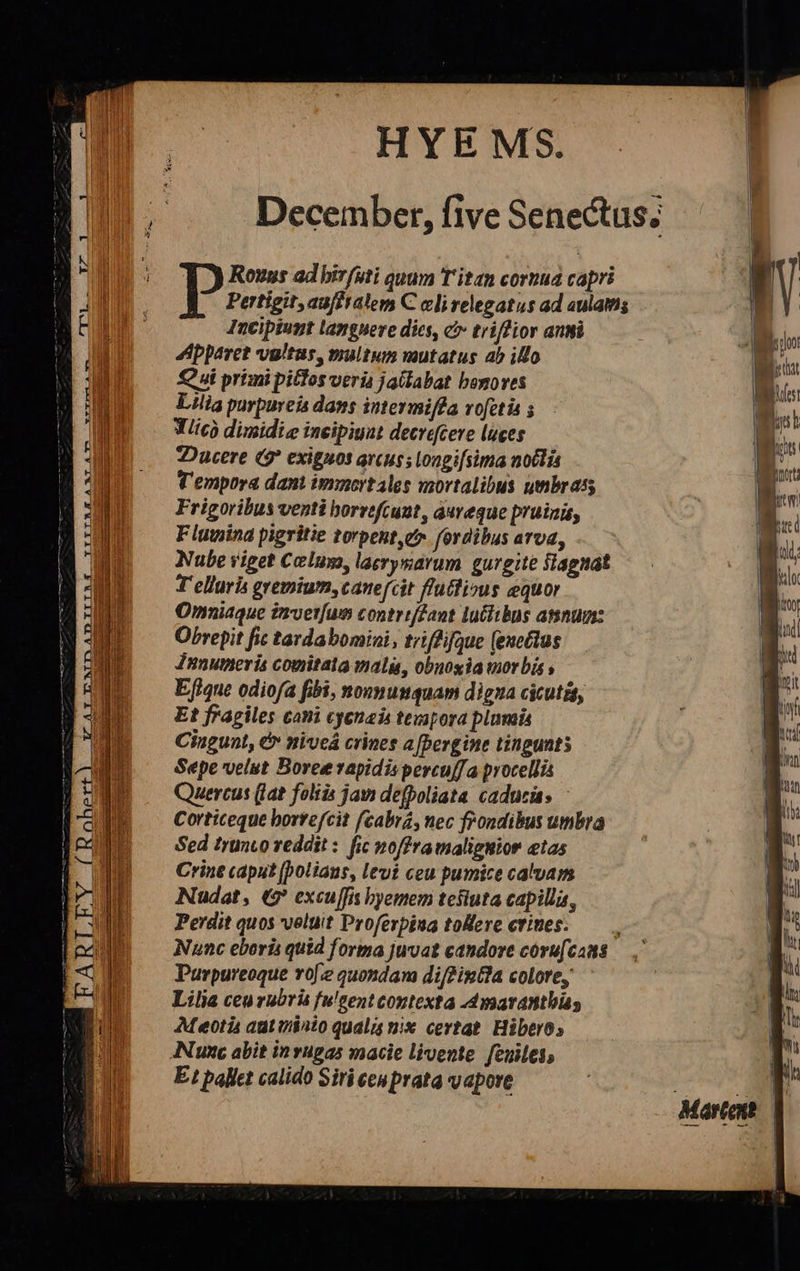 HYEMS.
December, ſive Senectus.
PRonus ad hirſuti quum Titan cornua capri
Pertigit, auſtralem Cœli relegatus ad aulam;
Incipiunt languere dies, & triſtior anni
Apparet vultus, multum mutatus ab illo
Qui primi pictos veris jactabat honores
Lilia purpureis dans intermiſta roſetis;
Ilicò dimidiæ incipiunt decreſcere luces
Ducere & exiguos arcus; longiſsima noctis
Tempora dant immortales mortalibus umbras;
Frigoribus venti horreſcunt, auræque pruinis,
Flumina pigritie torpent, & ſordibus arva,
Nube riget Cœlum, lacrymarum gurgite ſtagnat
Telluris gremium, caneſcit fluctivus æquor
Omniaque inverſum contriſtant luctibus annum:
Obrepit ſic tarda homini, triſtiſque ſenectus
Innumeris comitata malis, obnoxia morbis,
Eſtque odioſa ſibi, nonnunquam digna cicutis,
Et fragiles cani cycneis tempora plumis
Cingunt, & niveâ crines aſpergine tingunt;
Sæpe velut Boreæ rapidis percuſſa procellis
Quercus ſtat foliis jam deſpoliata caducis,
Corticeque horreſcit ſcabrâ, nec frondibus umbra
Sed trunco reddit: ſic noſtra malignior ætas
Crine caput ſpolians, levi ceu pumice calvam
Nudat, & excuſſis hyemem teſtata capillis,
Perdit quos voluit Proſerpina tollere crines.
Nunc eboris quid forma juvat candore coruſcans,
Purpureoque roſæ quondam diſtincta colore,
Lilia ceu rubris fulgent contexta Amaranthis,
Mæotis aut minio qualis nix certat Hibero,
Nunc abit in rugas macie livente ſeniles,
Et pallet calido Siri ceu prata vapore
Marcent
FARLEY (Robert) KALENDARIUM